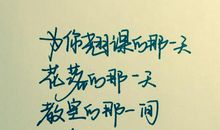 为你翘课的那一天
花落的那一天
教室的那一间